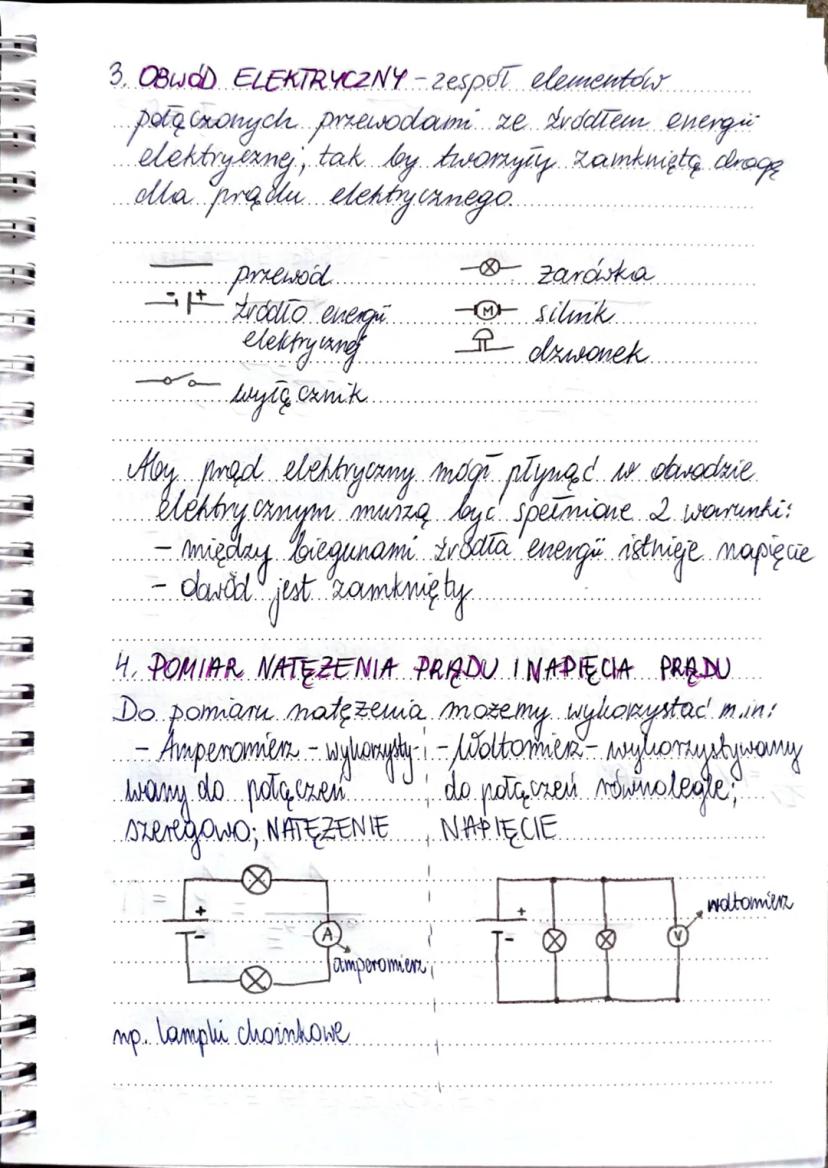 3. OBWÓD ELEKTRYCZNY - zespół elementów
połączonych przewodami ze źródłem energii
elektrycznej, tak by tworzyły zamkniętą drogę
dla prądu elektrycznego.
przewód
- +
źródło energii
elektrycznej
wyłącznik
żarówka
M
silnik
dzwonek
Aby prąd elektryczny mógł płynąć w obwodzie
elektrycznym muszą być spełnione 2 warunki:
- między biegunami źródła energii istnieje napięcie
- obwód jest zamknięty
4. POMIAR NATĘŻENIA PRĄDU I NAPIĘCIA PRĄDU
Do pomiaru natężenia możemy wykorzystać m.in:
- Amperomierz - wykorzysty-
wany do połączeń
szeregowo; NATĘŻENIE
+
-
A
amperomierz
np. lampki choinkowe
- Woltomierz - wykorzystywany
do połączeń równolegle;
NAPIĘCIE
+
-
V
woltomierz